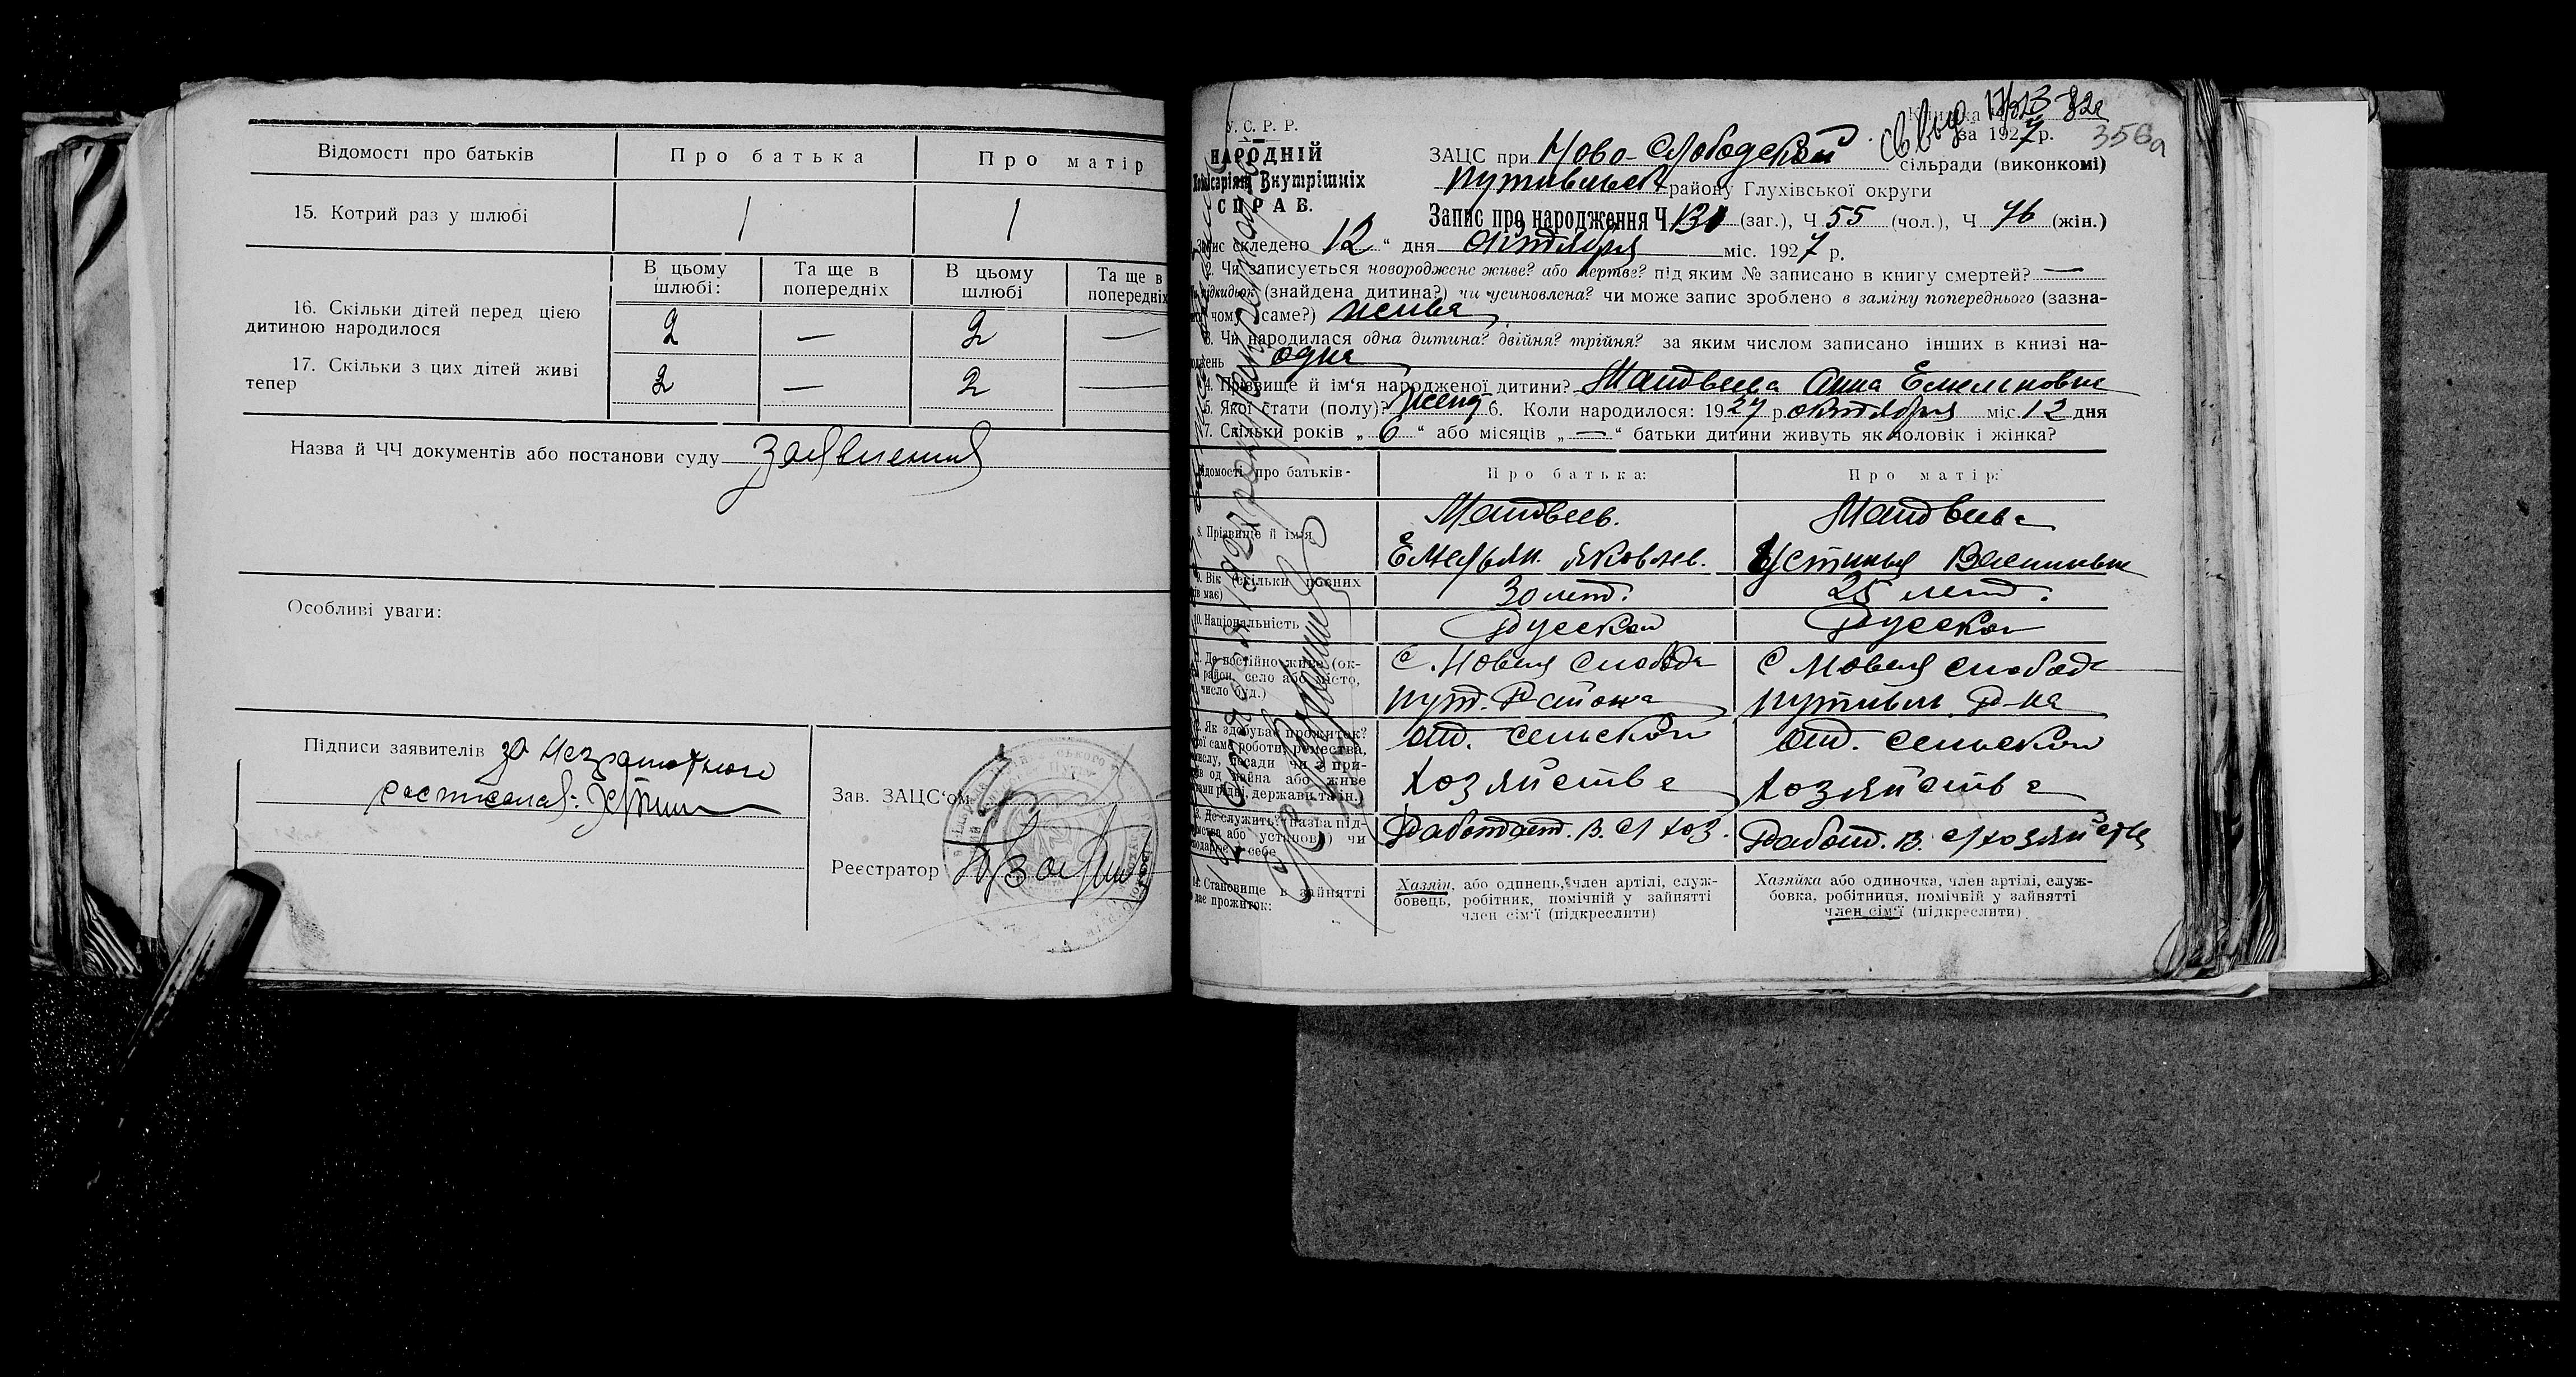 Відомості про батьків
Про батька
Про матір
15. Котрий раз у шлюбі
1
1
В цьому шлюбі:
Та ще в попередніх
В цьому шлюбі
Та ще в попередніх
16. Скільки дітей перед цією
дитиною народилося
2 — 2 —
17. Скільки з цих дітей живі
тепер
2 — 2
Назва й ЧЧ документів або постанови суду заявления
Особливі уваги:
Підписи заявителів за неграмотного
Зав. ЗАЦС‘ом
Реєстратор
У. С. Р. Р.
НАРОДНІЙ
Комісаріят Внутрішніх
СПРАВ.
за 1927 р.
356а
ЗАЦС при Ново-Слободской сільради (виконкомі)
Путивльск району Глухівської округи
Запис про народження Ч 131 (заг.), Ч 55 (чол.), Ч 76 (жін.)
Запис складено 12 “ дня октября міс. 1927 р.
2. Чи записується новороджене живе? або мертве? під яким № записано в книгу смертей? —
підкидьок (знайдена дитина?) чи усиновлена? чи може запис зроблено в заміну попереднього (зазна-
чому саме?) жива
3. Чи народилася одна дитина? двійня? трійня? за яким числом записано інших в книзі на-
роджень одна
4. Прізвище й ім‘я народженої дитини? Матвеева Анна Емельяновна
5. Якої стати (полу)? женск 6. Коли народилося: 1927 р. октября міс. 12 дня
7. Скільки років „ 6 “ або місяців „ — “ батьки дитини живуть як чоловік і жінка?
Відомості про батьків-
Про батька:
Про матір:
8. Прізвище й ім‘я
Матвеев.
Емельян. Яковлев.
Матвеева
Устинья
9. Вік (скільки повних
років має)
30 лет.
25 лет.
10. Національність
Русской
Русской
11. Де постійно живе (ок-
район, село або місто,
число буд.)
С. Новая Слобода
Пут. Района
С Новая Слобода
Путивл. Р-на
12. Як здобуває прожиток?
От. сельского
хозяйства
От. сельского
хозяйства
13. Де служить? (назва під-
приємства або установи) чи
Работает. в. с/ хоз.
Работ. в. с/хозяйстве
14. Становище в зайнятті
дає прожиток:
Хазяїн, або одинець, член артілі, служ-
бовець, робітник, помічній у зайнятті
член сім‘ї (підкреслити)
Хазяйка або одиночка, член артілі, служ-
бовка, робітниця, помічній у зайнятті
член сім‘ї (підкреслити)